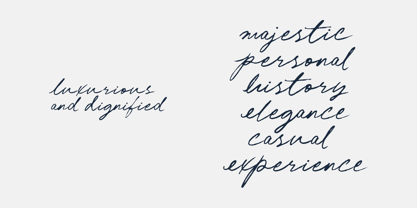 luxurious
and dignified
majestic
personal
history
elegance
casual
experience